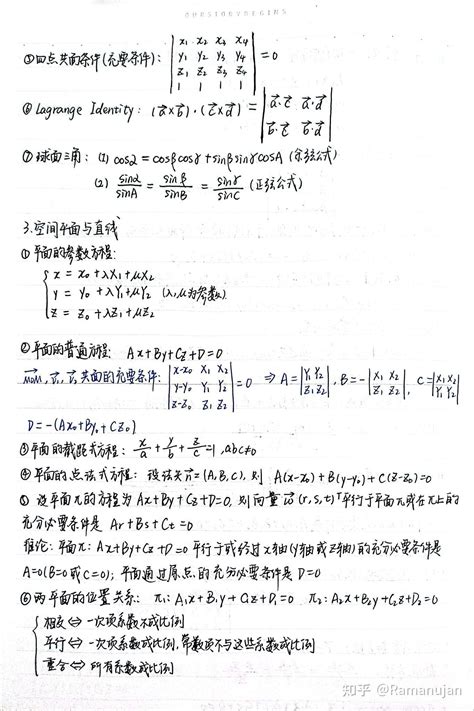 OURSTORYBEGINS
⑤四点共面条件(充要条件): | x₁ x₂ x₃ x₄ |
| y₁ y₂ y₃ y₄ | = 0
| z₁ z₂ z₃ z₄ |
| 1 1 1 1 |
⑥ Lagrange Identity: (a⃗×b⃗)·(c⃗×d⃗) = | a⃗·c⃗ a⃗·d⃗ |
| b⃗·c⃗ b⃗·d⃗ |
⑦ 球面三角: (1) cosα = cosβcosγ + sinβsinγcosA (余弦公式)
(2) sinα/sinA = sinβ/sinB = sinγ/sinC (正弦公式)
3.空间平面与直线
①平面的参数方程:
{ x = x₀ + λX₁ + μX₂
y = y₀ + λY₁ + μY₂ (λ,μ为参数)
z = z₀ + λZ₁ + μZ₂
②平面的普通方程: Ax+By+Cz+D=0
共面的充要条件: | x-x₀ X₁ X₂ |
| y-y₀ Y₁ Y₂ | = 0 ⇒ A = | Y₁ Y₂ | , B = - | X₁ X₂ | , C = | X₁ X₂ |
| z-z₀ Z₁ Z₂ | | Z₁ Z₂ | | Z₁ Z₂ | | Y₁ Y₂ |
D = -(Ax₀+By₀+Cz₀)
③平面的截距式方程: x/a + y/b + z/c = 1, abc≠0
④平面的点法式方程: 设法矢n⃗=(A,B,C), 则 A(x-x₀)+B(y-y₀)+C(z-z₀)=0
⑤ 设平面π的方程为 Ax+By+Cz+D=0, 则向量w⃗(r,s,t)ᵀ平行于平面π或在π上的
充分必要条件是 Ar+Bs+Ct=0
推论: 平面π: Ax+By+Cz+D=0 平行于或经过x轴(y轴或z轴)的充分必要条件是
A=0(B=0或C=0); 平面通过原点的充分必要条件是 D=0
⑥ 两平面的位置关系: π₁: A₁x+B₁y+C₁z+D₁=0 π₂: A₂x+B₂y+C₂z+D₂=0
{ 相交⇔一次项系数不成比例
平行⇔一次项系数成比例, 常数项不与这些系数成比例
重合⇔所有系数成比例
知乎 @Ramanujan